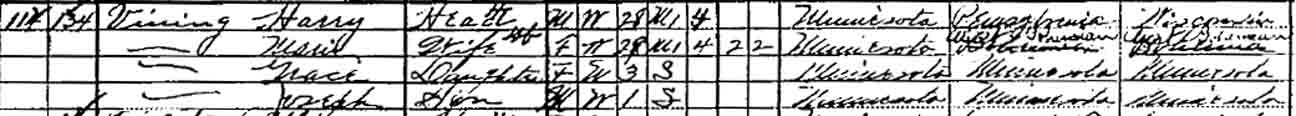 114 134 Vining Harry Head M W 28 M1 4 Minnesota Pennsylvania Wisconsin
— Marie Wife F W 28 M1 4 2 2 Minnesota Bohemian Bohemia
— Grace Daughter F W 3 S Minnesota Minnesota Minnesota
— Joseph Son M W 1 S Minnesota Minnesota Minnesota